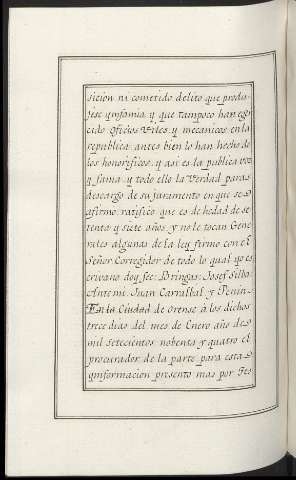 sicion ni cometido delito que produ-
jese ynfamia y que tampoco han eger
cido oficios viles y mecanicos en la
republica antes bien lo han hecho de
los honorificos y asi es la publica voz
y fama y todo ello la verdad para
descargo de su juramento en que se
afirmo ratifico que es de hedad de se
tenta y siete años y no le tocan Gene
rales algunas de la ley firmo con el
Señor Corregidor de todo lo qual yo es
crivano doy fee: Josef
Ante mi Juan Carralbal y Penin-
En la Ciudad de Orense à los dichos
trece dias del mes de Enero año de
mil setecientos nobenta y quatro el
procurador de la parte para esta
ynformacion presento mas por tes